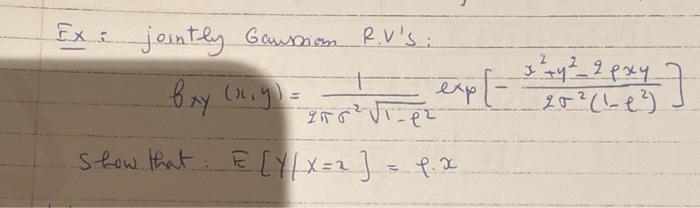 Ex : jointly Gaussian R.V's :
f_xy (x,y) = 1 / (2πσ² √(1-ρ²)) exp [ - (x²+y²-2ρxy) / (2σ²(1-ρ²)) ]
Show that : E [Y/X=x] = ρ.x